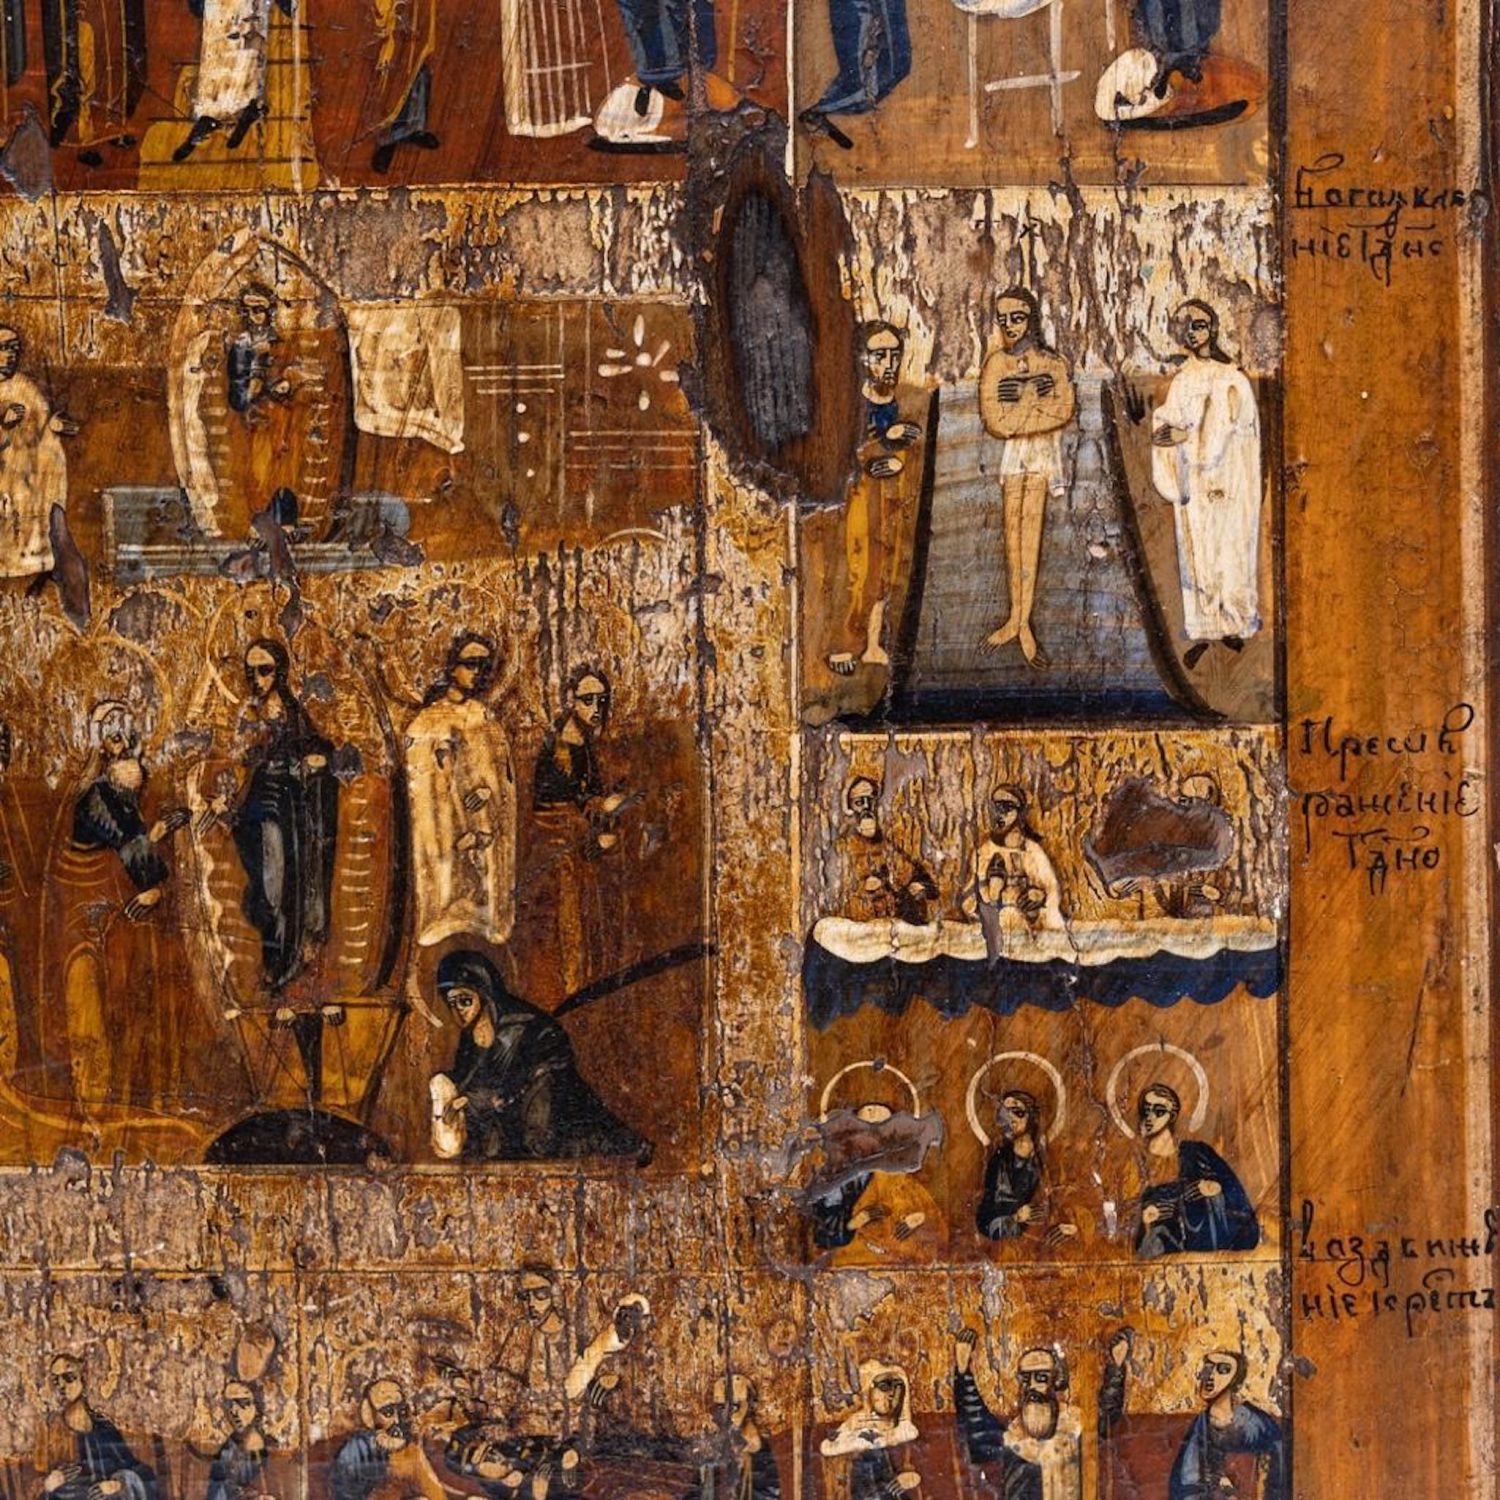 Богаявле
ніе Гднѐ
Преωб
ражѐніе
Гд҃но
Воздвиже
ніе Крѐта